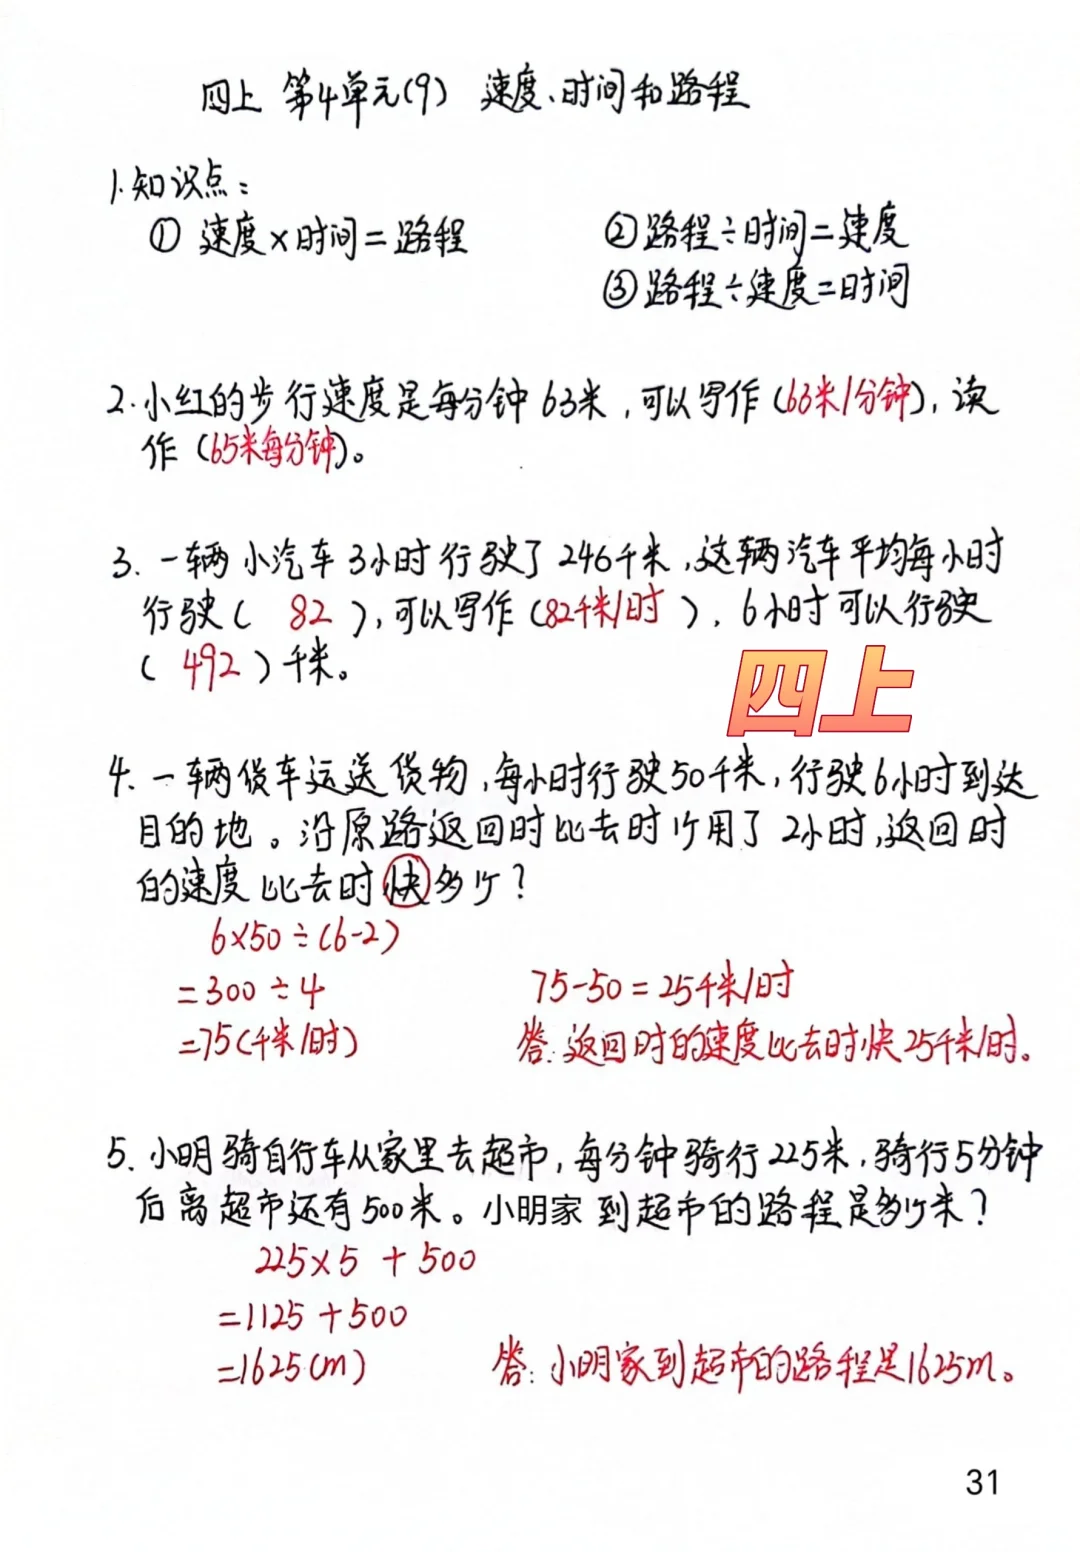 四上 第4单元(9) 速度、时间和路程
1.知识点:
① 速度×时间=路程 ②路程÷时间=速度
③路程÷速度=时间
2.小红的步行速度是每分钟63米,可以写作(63米/分钟),读
作(65米每分钟)。
3.一辆小汽车3小时行驶了246千米,这辆汽车平均每小时
行驶( 82 ),可以写作(82千米/时),6小时可以行驶
( 492 )千米。
四上
4.一辆货车运送货物,每小时行驶50千米,行驶6小时到达
目的地。沿原路返回时比去时少用了2小时,返回时
的速度比去时快多少?
6×50÷(6-2)
=300÷4 75-50=25千米/时
=75(千米/时) 答:返回时的速度比去时快25千米/时。
5.小明骑自行车从家里去超市,每分钟骑行225米,骑行5分钟
后离超市还有500米。小明家到超市的路程是多少米?
225×5+500
=1125+500
=1625(m) 答:小明家到超市的路程是1625m。
31